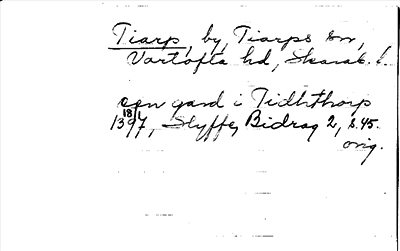 Tiarp, by, Tiarps sn,
Vartofta hd, Skarab. l.
een gard i Tidhthorp
18/1
1397, Styffe, Bidrag 2, s. 45.
orig.